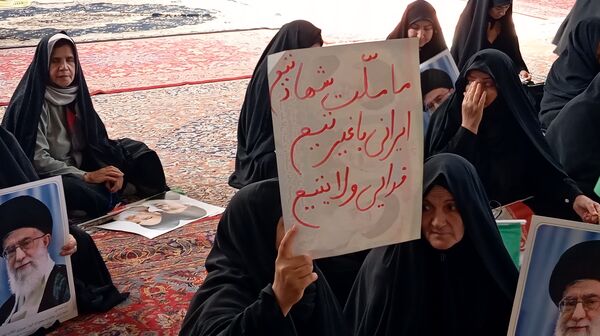 ما ملّت شهادتیم
ایرانی با غیرتیم
فدایی ولایتیم